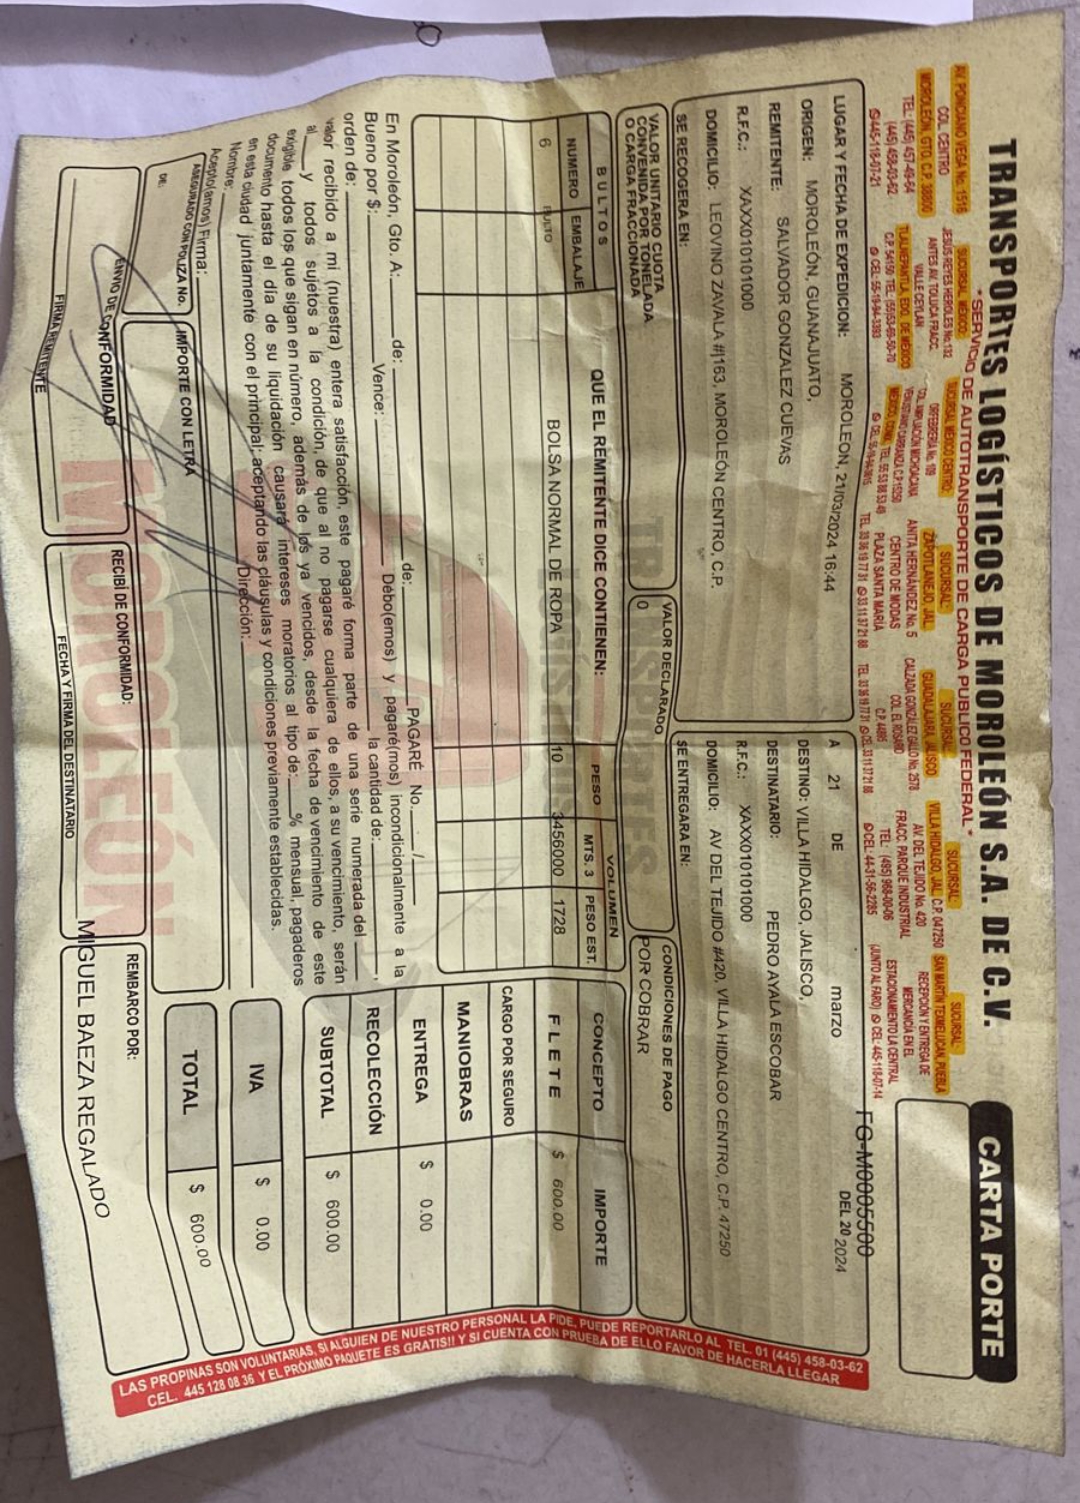 TRANSPORTES LOGÍSTICOS DE MOROLEÓN S.A. DE C.V.
CARTA PORTE
"SERVICIO DE AUTOTRANSPORTE DE CARGA PUBLICO FEDERAL"
AV. PONCIANO VEGA No. 1516
COL. CENTRO
MOROLEÓN, GTO. C.P. 38800
TEL: (445) 457-49-64
(445) 458-03-62
445-118-07-21
SUCURSAL MÉXICO:
JESÚS REYES HEROLES No. 132
ANTES AV. TOLUCA FRACC.
VALLE CEYLAN
TLALNEPANTLA, EDO. DE MÉXICO
C.P. 54150 TEL: (55)53-69-50-70
CEL: 55-19-94-3393
SUCURSAL MÉXICO CENTRO:
ORFEBRERÍA No. 109
COL. AMPLIACIÓN MICHOACANA
VENUSTIANO CARRANZA C.P. 15250
SUCURSAL:
ZAPOTLANEJO, JAL.
ANITA HERNÁNDEZ No. 5
CENTRO DE MODAS
PLAZA SANTA MARÍA
SUCURSAL:
GUADALAJARA, JALISCO
CALZADA GONZÁLEZ GALLO No. 2578
COL. EL ROSARIO
C.P. 44895
SUCURSAL:
VILLA HIDALGO, JAL. C.P. 047250
AV. DEL TEJIDO No. 420
FRACC. PARQUE INDUSTRIAL
TEL: (495) 968-00-06
CEL: 44-31-56-2285
SUCURSAL:
SAN MARTÍN TEXMELUCAN, PUEBLA
RECEPCIÓN Y ENTREGA DE
MERCANCÍA EN EL
ESTACIONAMIENTO LA CENTRAL
(JUNTO AL FARO) CEL: 445-118-07-14
FG-M0005500
DEL 20 2024
LUGAR Y FECHA DE EXPEDICION: MOROLEON, 21/03/2024 16:44
A 21 DE marzo
ORIGEN: MOROLEÓN, GUANAJUATO,
DESTINO: VILLA HIDALGO, JALISCO,
REMITENTE: SALVADOR GONZALEZ CUEVAS
DESTINATARIO: PEDRO AYALA ESCOBAR
R.F.C.: XAXX010101000
R.F.C.: XAXX010101000
DOMICILIO: LEOVINO ZAVALA #|163, MOROLEÓN CENTRO, C.P.
DOMICILIO: AV DEL TEJIDO #420, VILLA HIDALGO CENTRO, C.P. 47250
SE RECOGERA EN:
SE ENTREGARA EN:
VALOR UNITARIO CUOTA
CONVENIDA POR TONELADA
O CARGA FRACCIONADA
VALOR DECLARADO
0
CONDICIONES DE PAGO
POR COBRAR
BULTOS
NUMERO EMBALAJE
QUE EL REMITENTE DICE CONTIENEN:
PESO
VOLUMEN
MTS. 3 PESO EST.
CONCEPTO
IMPORTE
6 BULTO BOLSA NORMAL DE ROPA 10 3456000 1728
FLETE $ 600.00
CARGO POR SEGURO
MANIOBRAS
ENTREGA $ 0.00
RECOLECCIÓN
SUBTOTAL $ 600.00
IVA $ 0.00
TOTAL $ 600.00
TRANSPORTES
LOGÍSTICOS
MOROLEÓN
PAGARÉ No. /
En Moroleón, Gto. A: de: de:
Débo(emos) y pagaré(mos) incondicionalmente a la
Bueno por $: Vence: la cantidad de: ,
orden de:
valor recibido a mi (nuestra) entera satisfacción, este pagaré forma parte de una serie numerada del
al y todos sujetos a la condición, de que al no pagarse cualquiera de ellos, a su vencimiento, serán
exigible todos los que sigan en número, además de los ya vencidos, desde la fecha de vencimiento de este
documento hasta el día de su liquidación causará intereses moratorios al tipo de: % mensual, pagaderos
en esta ciudad juntamente con el principal; aceptando las cláusulas y condiciones previamente establecidas.
Nombre: Dirección:
Acepto(amos) Firma:
ASEGURADO CON POLIZA No.
DE:
IMPORTE CON LETRA
ENVIO DE CONFORMIDAD
FIRMA REMITENTE
RECIBÍ DE CONFORMIDAD:
FECHA Y FIRMA DEL DESTINATARIO
REMBARCO POR:
MIGUEL BAEZA REGALADO
LAS PROPINAS SON VOLUNTARIAS, SI ALGUIEN DE NUESTRO PERSONAL LA PIDE, PUEDE REPORTARLO AL TEL. 01 (445) 458-03-62
CEL. 445 128 08 36 Y EL PRÓXIMO PAQUETE ES GRATIS!! Y SI CUENTA CON PRUEBA DE ELLO FAVOR DE HACERLA LLEGAR